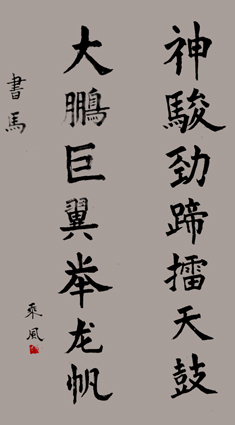 神駿勁蹄擂天鼓
大鵬巨翼举龙帆
書馬
乘風